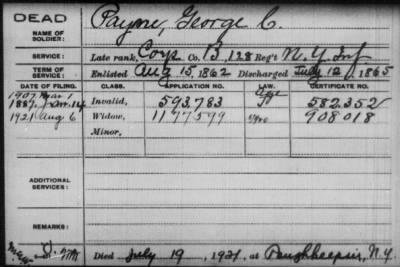 DEAD
Payne, George C.
NAME OF
SOLDIER:
SERVICE:
Late rank, Corp Co. B, 128 Reg't N.Y. Inf
TERM OF
SERVICE:
Enlisted Aug 15, 1862 Discharged July 12, 1865
DATE OF FILING. CLASS. APPLICATION NO. LAW. CERTIFICATE NO.
1907 Mar 1
Age
1887 Jan 14 Invalid, 593,783 582.352
1921 Aug 6 Widow, 1177579 908018
Minor.
ADDITIONAL
SERVICES:
REMARKS:
Died July 19, 1921, at Poughkeepsie, N.Y.